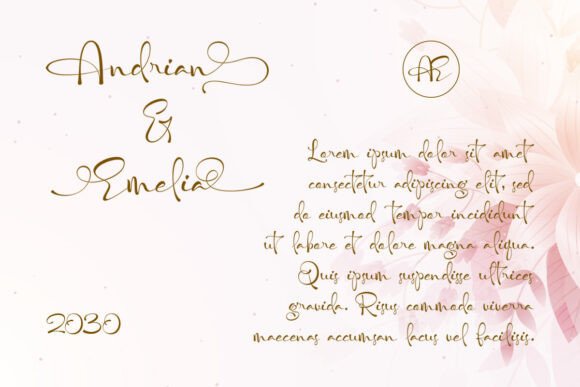 Andrian
&
Emelia
2030
AR
Lorem ipsum dolor sit amet
consectetur adipiscing elit, sed
do eiusmod tempor incididunt
ut labore et dolore magna aliqua.
Quis ipsum suspendisse ultrices
gravida. Risus commodo viverra
maecenas accumsan lacus vel facilisis.